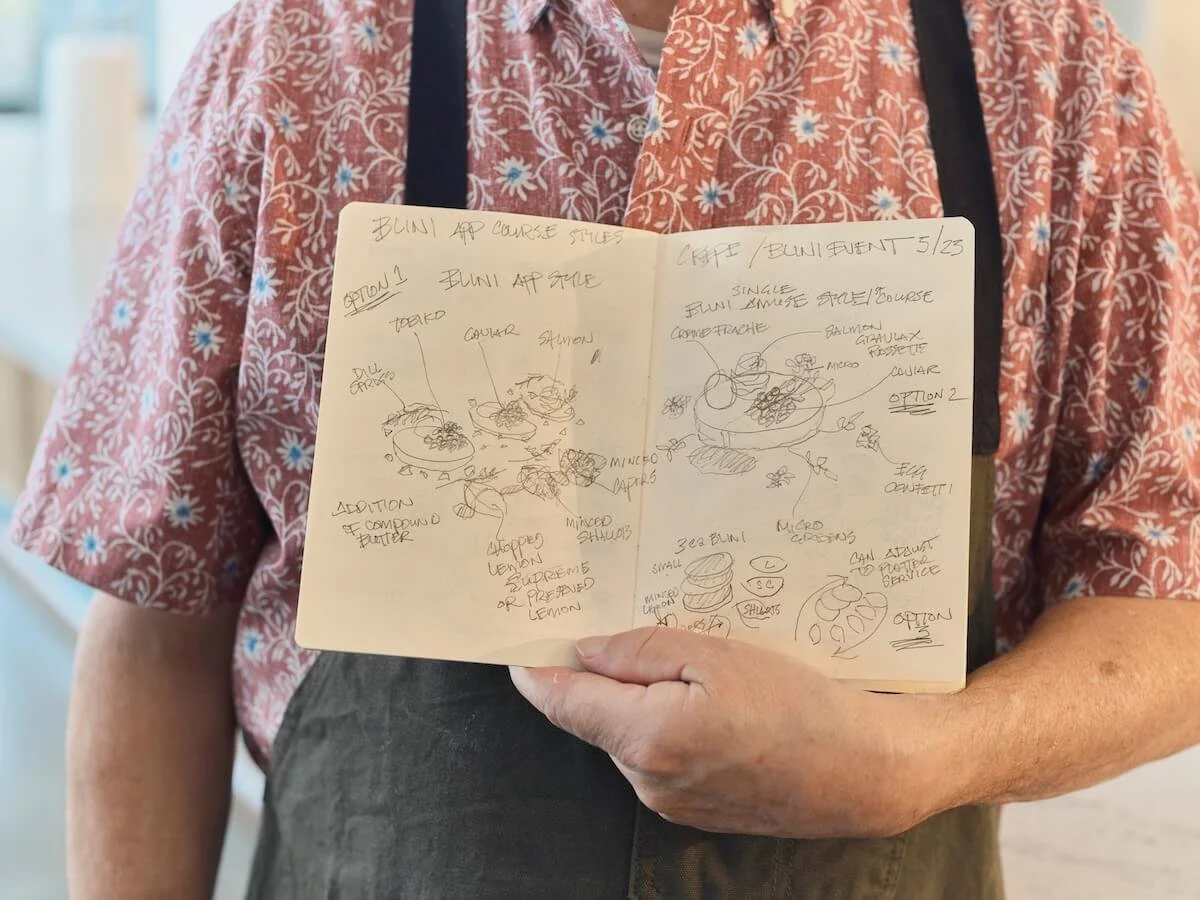 BLINI APP COURSE STYLES
OPTION 1
BLINI APP STYLE
TOBIKO
CAVIAR
SALMON
DILL
SPRIGS
MINCED
CAPERS
ADDITION
OF COMPOUND
BUTTER
MINCED
SHALLOTS
CHOPPED
LEMON
SUPREME
OR PRESERVED
LEMON
CREPE / BLINI EVENT 5/23
SINGLE
BLINI AMUSE STYLE/1ST COURSE
CREME FRACHE
SALMON
GRAVLAX
ROSSETTE
MICRO
CAVIAR
OPTION 2
EGG
CONFETTI
MICRO
GREENS
3 EZ BLINI
SMALL
L
SC
SHLLOTS
MINCED
LEMON
CAN ADJUST
TO PLATTER
SERVICE
OPTION
3